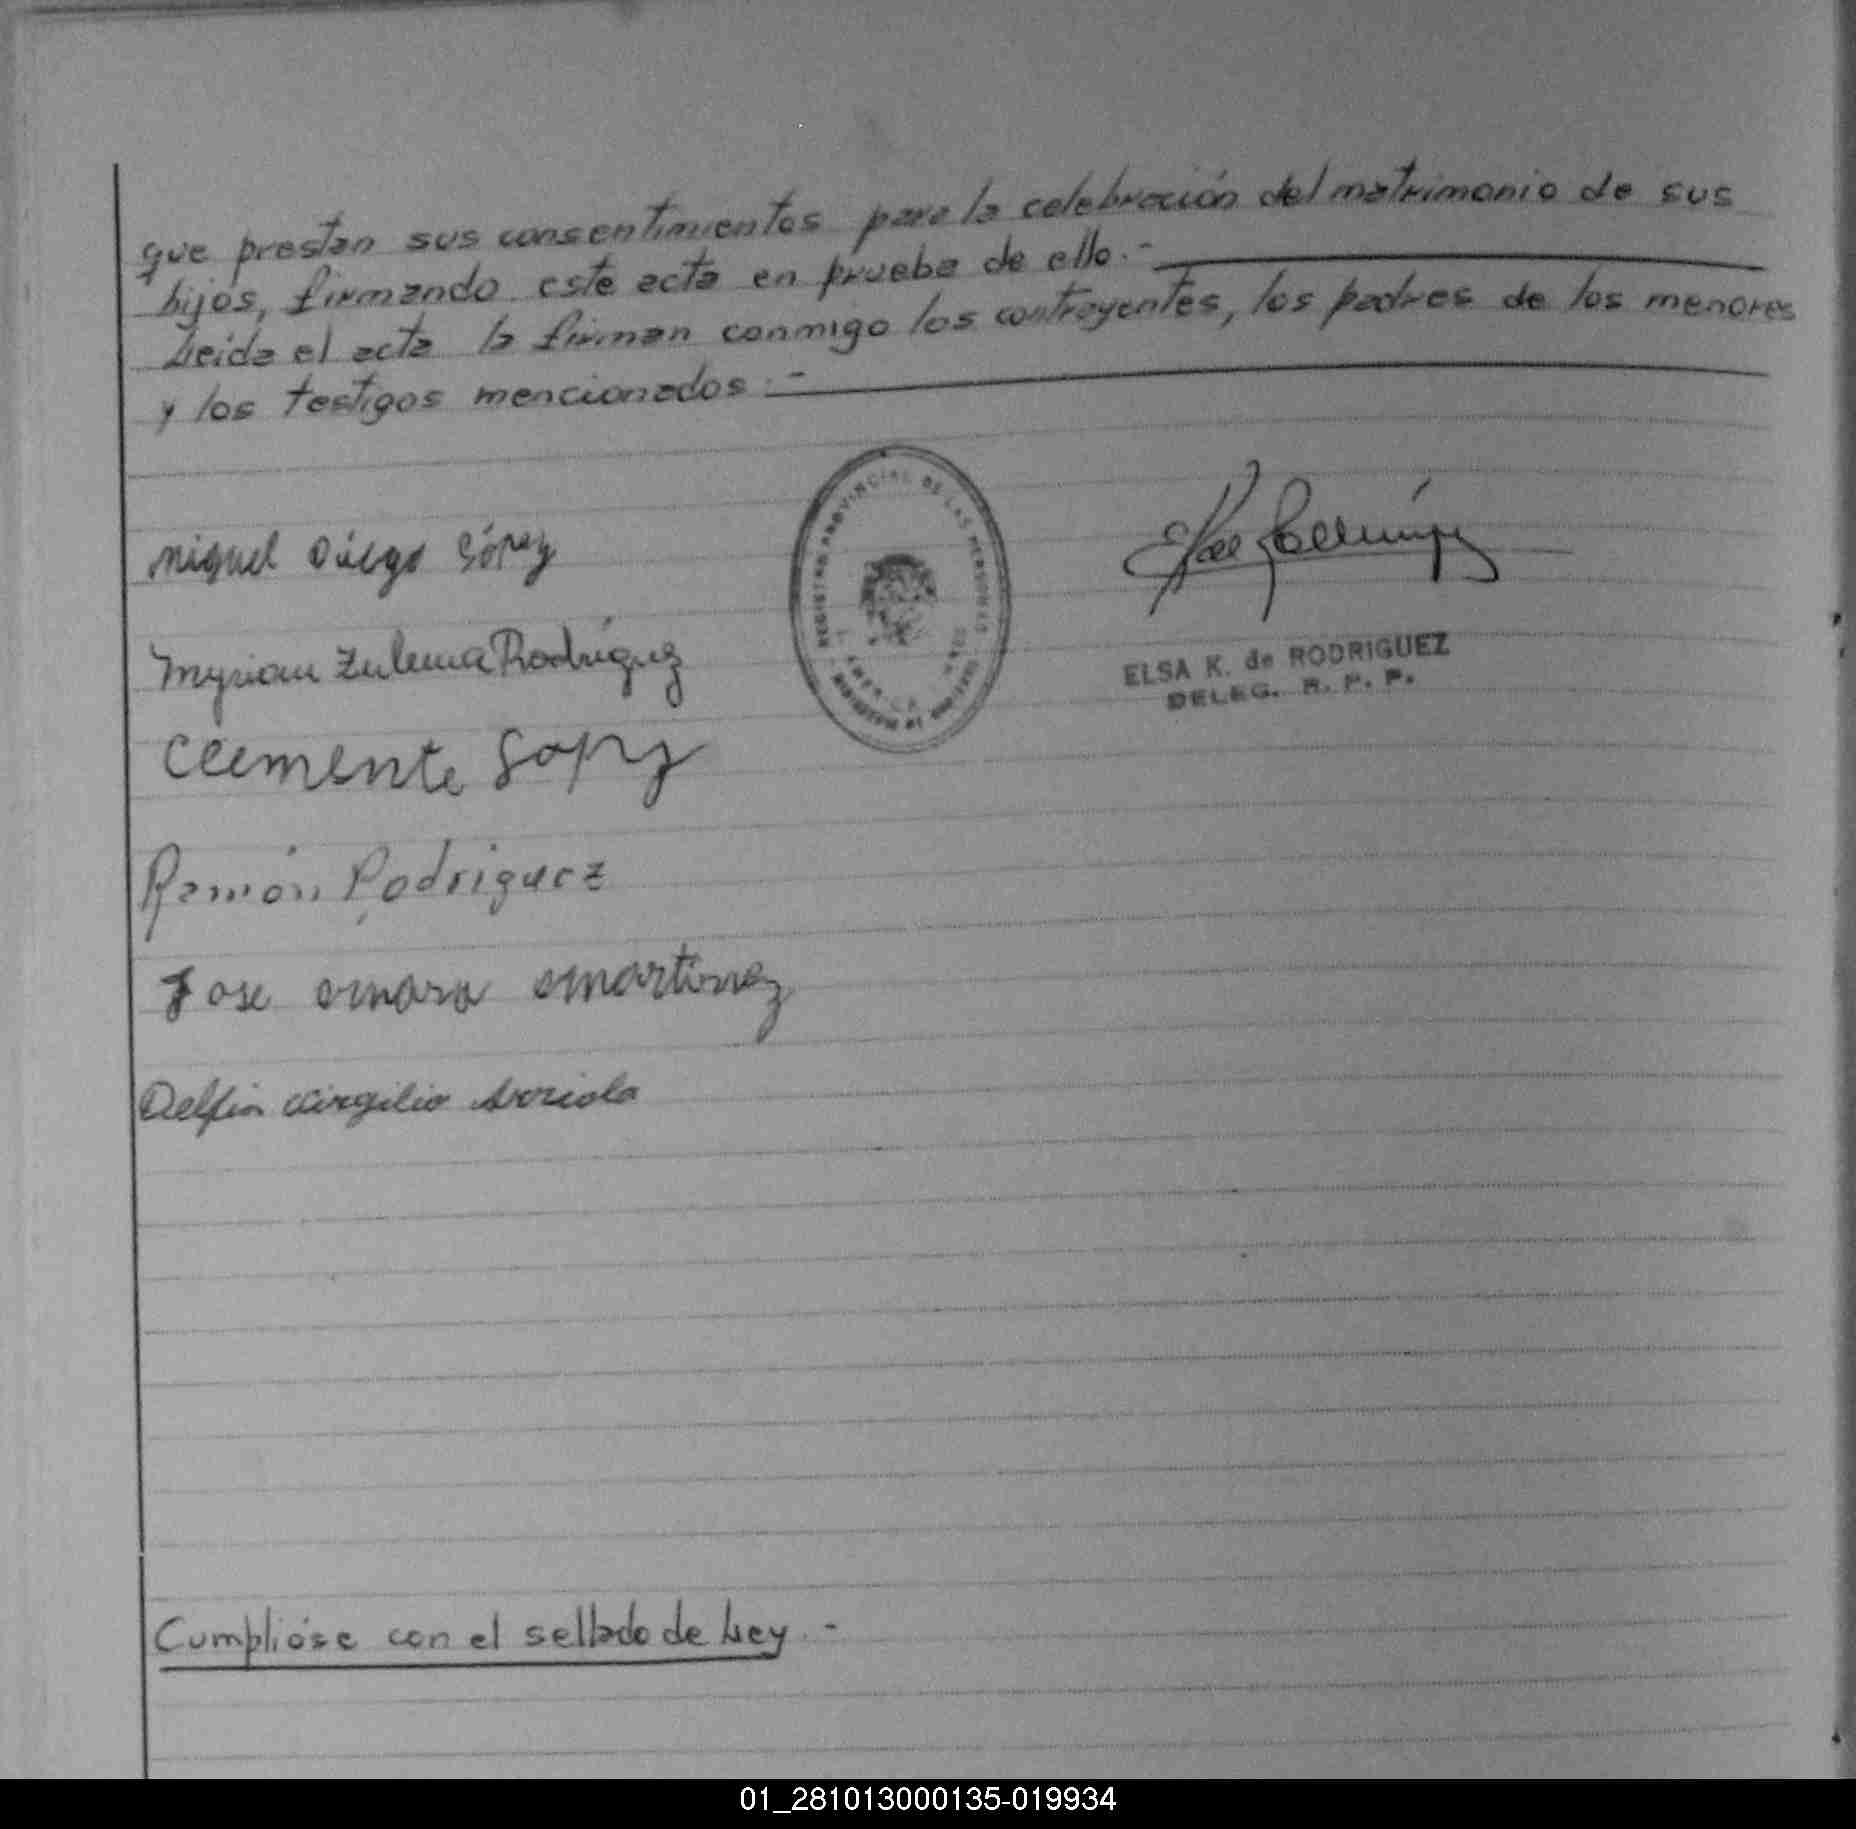 que prestan sus consentimientos para la celebración del matrimonio de sus
hijos, firmando este acta en prueba de ello.-
Leida el acta la firman conmigo los contrayentes, los padres de los menores
y los testigos mencionados.-
REGISTRO PROVINCIAL DE LAS PERSONAS
Miguel Diego López
Myriam Zulema Rodriguez
ELSA K. de RODRIGUEZ
DELEG. R. P. P.
Clemente Lopez
Ramón Rodriguez
Jose Omar Martinez
Delfin Virgilio Arriola
Cumplióse con el sellado de Ley.-
01_281013000135-019934